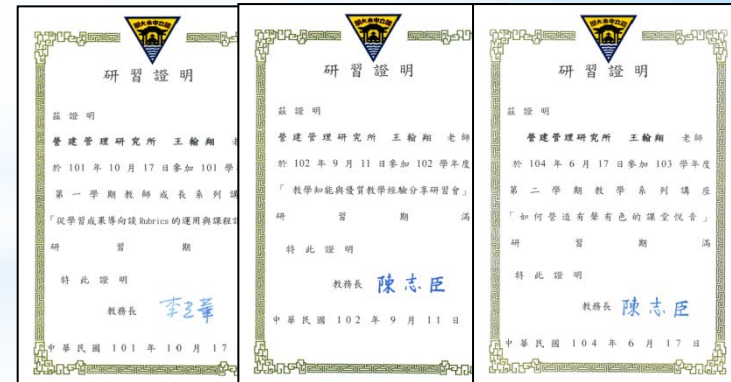 研習證明
茲證明
營建管理研究所 王翰翔 老
於 101 年 10 月 17 日參加 101 學
第一學期教師成長系列講
「從學習成果導向談 Rubrics 的運用與課程
研習期
特此證明
教務長
中華民國 101 年 10 月 17
研習證明
茲證明
營建管理研究所 王翰翔 老師
於 102 年 9 月 11 日參加 102 學年度
「教學知能與優質教學經驗分享研習會」
研習期滿
特此證明
教務長 陳志臣
中華民國 102 年 9 月 11 日
研習證明
茲證明
營建管理研究所 王翰翔 老師
於 104 年 6 月 17 日參加 103 學年度
第二學期教學系列講座
「如何營造有聲有色的課堂悅音」
研習期滿
特此證明
教務長 陳志臣
中華民國 104 年 6 月 17 日